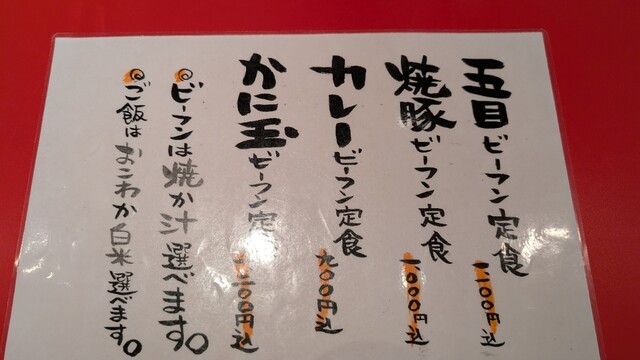 五目ビーフン定食 一一00円込
焼豚ビーフン定食 一000円込
カレービーフン定食 九00円込
かに玉ビーフン定 一二00円込
ビーフンは焼か汁選べます。
ご飯はおこわか白米選べます。